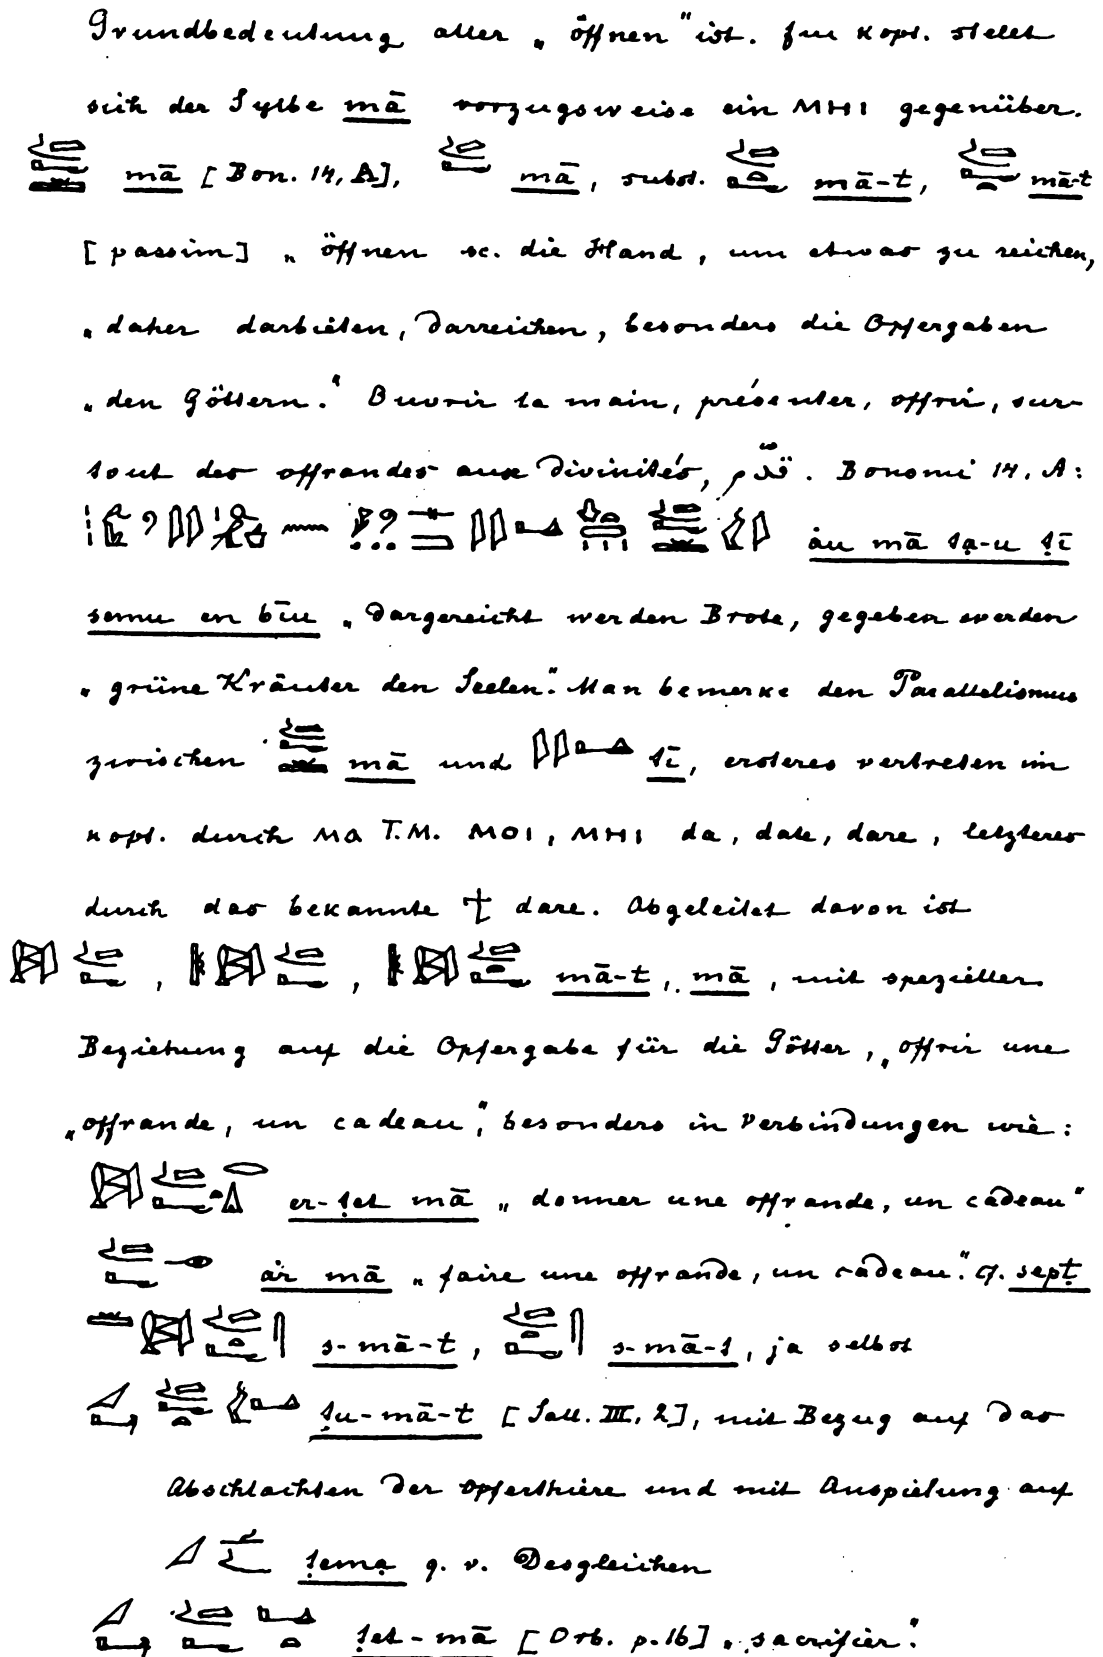 Grundbedeutung aller „öffnen" ist. Im Kopt. stellt
sich der Sylbe mā vorzugsweise ein ⲙⲏⲓ gegenüber.
mā [Bon. 14, A], mā, subst. mā-t, mā-t
[passim] „öffnen sc. die Hand, um etwas zu reichen,
„daher darbieten, darreichen, besonders die Opfergaben
„den Göttern." Ouvrir la main, présenter, offrir, sur-
tout des offrandes aux divinités, قدّم. Bonomi 14. A:
áu mā ṭa-u ṭī
semu en bīu „dargereicht werden Brote, gegeben werden
„grüne Kräuter den Seelen". Man bemerke den Parallelismus
zwischen mā und ṭī, ersteres vertreten im
kopt. durch ⲙⲁ T.M. ⲙⲟⲓ, ⲙⲏⲓ da, date, dare, letzteres
durch das bekannte ϯ dare. Abgeleitet davon ist
mā-t, mā, mit spezieller
Beziehung auf die Opfergabe für die Götter, „offrir une
„offrande, un cadeau", besonders in Verbindungen wie:
er-ṭet mā „donner une offrande, un cadeau"
ȧr mā „faire une offrande, un cadeau". cf. sept
s-mā-t, s-mā-t, ja selbst
ṭu-mā-t [Sall. III. 2], mit Bezug auf das
Abschlachten der Opferthiere und mit Anspielung auf
ṭema q. v. Desgleichen
ṭet-mā [Orb. p. 16] „sacrifier".